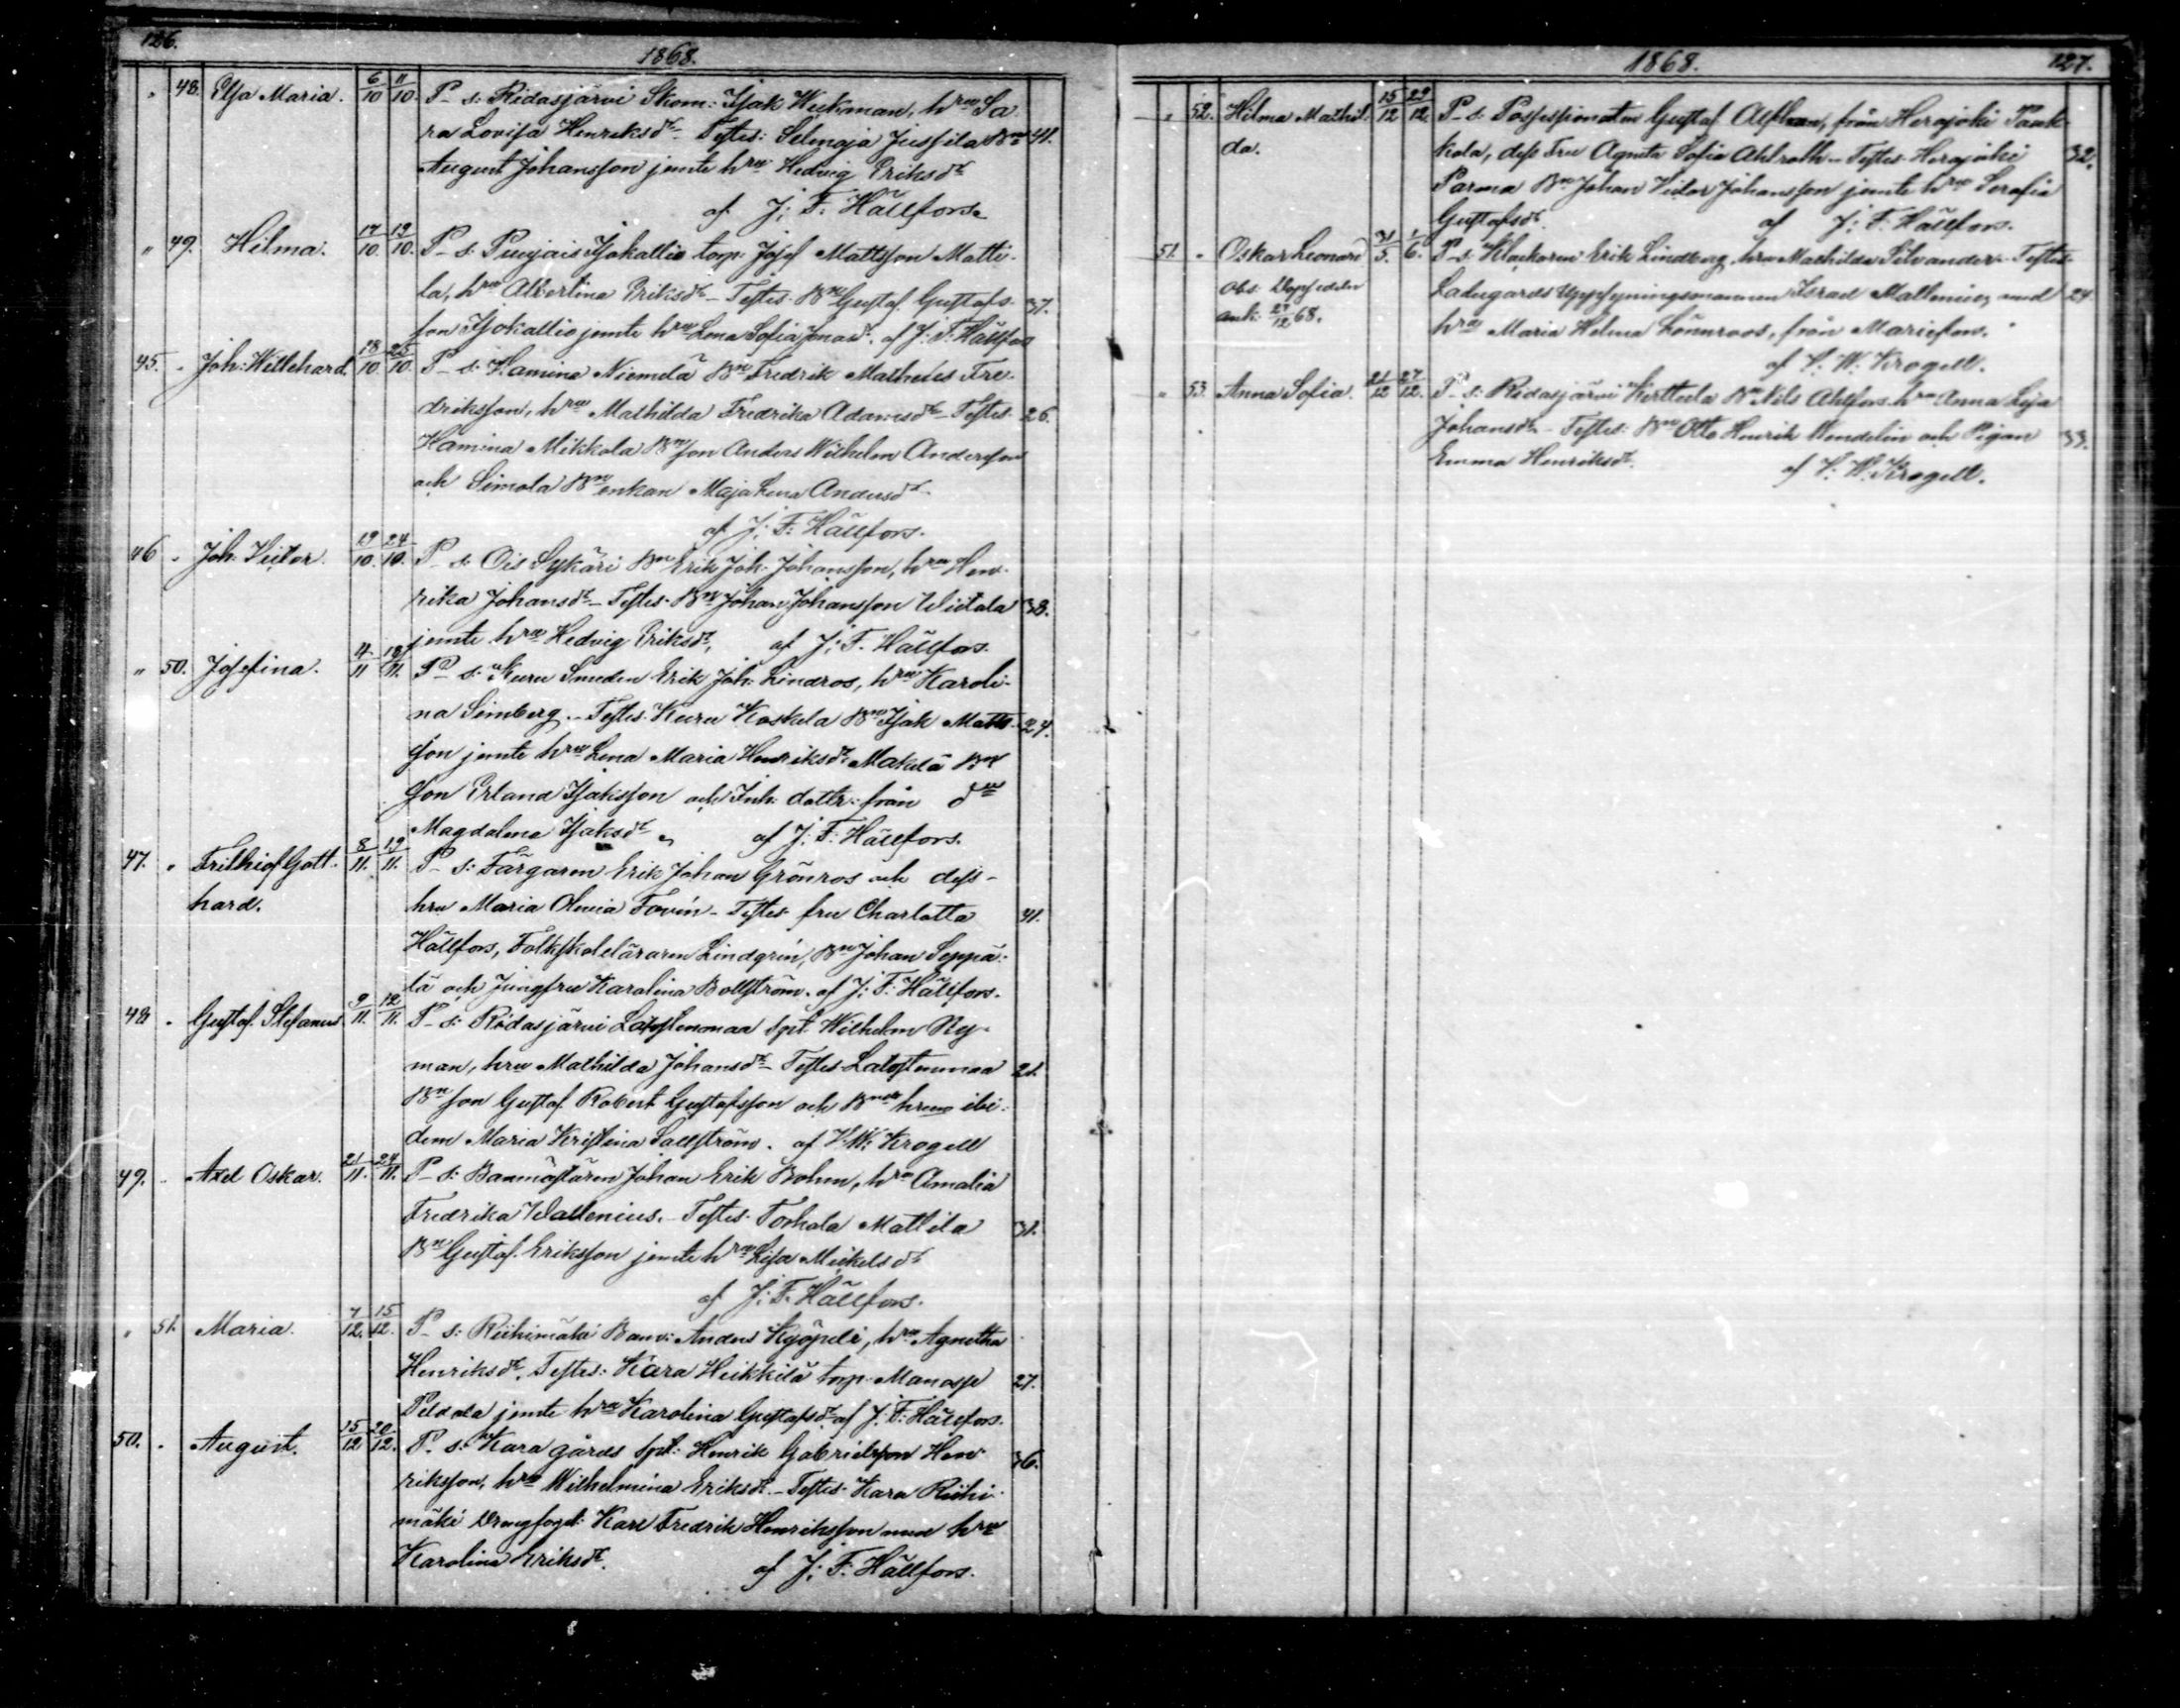 126.
1868.
" 48. Elsa Maria. 6/10 11/10. P_ s: Ridasjärvi Skom: Isak Weckman, hru Sa
ra Lovisa Henriksdr Testes: Selmaja Jussila Bn 41.
August Johansson jemte hru Hedvig Eriksdr
af J: F: Hällfors.
" 49. Hilma. 17/10. 19/10. P_ s: Isokallio torp: Josef Mattsson Matti-
la, hru Albertina Eriksdr_ Testes: Bn Gustaf Gustafs- 37.
son Isokallio jemte hru Lena Sofia Jonasdr. af J: F: Hällfors
45. " Joh: Willehard. 18/10. 25/10. P_ s: Hamina Niemelä Bn Fredrik Matheus Fre-
driksson, hru Mathilda Fredrika Adamsdr_ Testes: 26.
Hamina Mikkola Bn son Anders Wilhelm Andersson
och Simola Bn enkan Maja Lena Andersdr.
af J: F: Hällfors.
46 " Joh. Victor. 19/10. 24/10. P_ s: Ois Sykäri Bn Erik Joh: Johansson, hru Hen-
rika Johansdr_ Testes: Bn Johan Johansson Uotala 38.
jemte hru Hedvig Eriksdr, af J: F. Hällfors.
" 50. Josefina. 4/11 18/11. P_ s: Kuru Smeden Erik Joh: Lindros, hru Karoli-
na Simberg._ Testes: Kuru Koskela Bn Isak Matts- 24.
son jemte hru Lena Maria Henriksdr Makelä Bn
son Erland Isaksson och Inh: dottr: från dn
Magdalena Isaksdr af J: F: Hällfors.
47. " Frithiof Gott- 8/11. 19/11. P_ s: Färgaren Erik Johan Grönros och dess
hard. hru Maria Olivia Fovin_ Testes: fru Charlotta 41.
Hällfors, Folkskoleläraren Lindgrén, Bn Johan Seppä-
lä och Jungfru Karolina Bollström. af J: F: Hällfors.
48 " Gustaf Stefanus 9/11. 12/11. P_ s: Ridasjärvi Latostenmaa Spt: Wilhelm Ny-
man, hru Mathilda Johansdr_ Testes: Latostenmaa 21.
Bn son Gustaf Robert Gustafsson och Bns hru ibi-
dem Maria Kristina Sallström. af V. W. Krogell
49. " Axel Oskar. 21/11. 24/11. P_ s: Banmästaren Johan Erik Bohm, hru Amalia
Fredrika Wallenius._ Testes: Torhola Mattila 31.
Bn Gustaf Eriksson jemte hru Lisa Mickelsdr
af J: F: Hällfors.
" 51. Maria. 7/12. 15/12. P_ s: Riihimäki Banv: Anders Kyöpeli, hru Agnetha
Henriksdr. Testes: Kara Heikkilä torp: Manasse 27.
Peldola jemte hru Karolina Gustafsdr af J: F: Hällfors.
50. " August. 15/12 20/12. P_ s: Kara gårds Spt: Henrik Gabrielsson Hen- 36.
riksson, hru Wilhelmina Eriksdr._ Testes: Kara Riihi-
mäki Drengfogd: Karl Fredrik Henriksson med hru
Karolina Eriksdr. af J: F: Hällfors.
1868. 127.
" 52. Hilma Mathil- 15/12 29/12. P_ s: Possessionaten Gustaf Ahlman, från Herajoki Pank-
da. kola, dess Fru Agneta Sofia Ahlroth_ Testes: Herajoki 32.
Parma Bn Johan Victor Johansson jemte hru Serafia
Gustafsdr. af J: F: Hällfors.
51. " Oskar Leonard 31/5. 1/6. P_ s: Klockaren Erik Lindberg, hru Mathilda Silvander_ Testes:
Obs. Dopsedeln Ladugårds Uppsyningsmannen Israel Mallenius, med 24.
ank: 27/12 68. hru Maria Helena Lönnroos, från Mariefors.
af V. W. Krogell.
" 53. Anna Sofia. 21/12 27/12. P_ s: Ridasjärvi Kerttula Bn Nils Ahlfors hru Anna Lisa
Johansdr_ Testes: Bn Otto Henrik Wendelin och Pigan 33.
Emma Henriksdr. af V. W. Krogell.